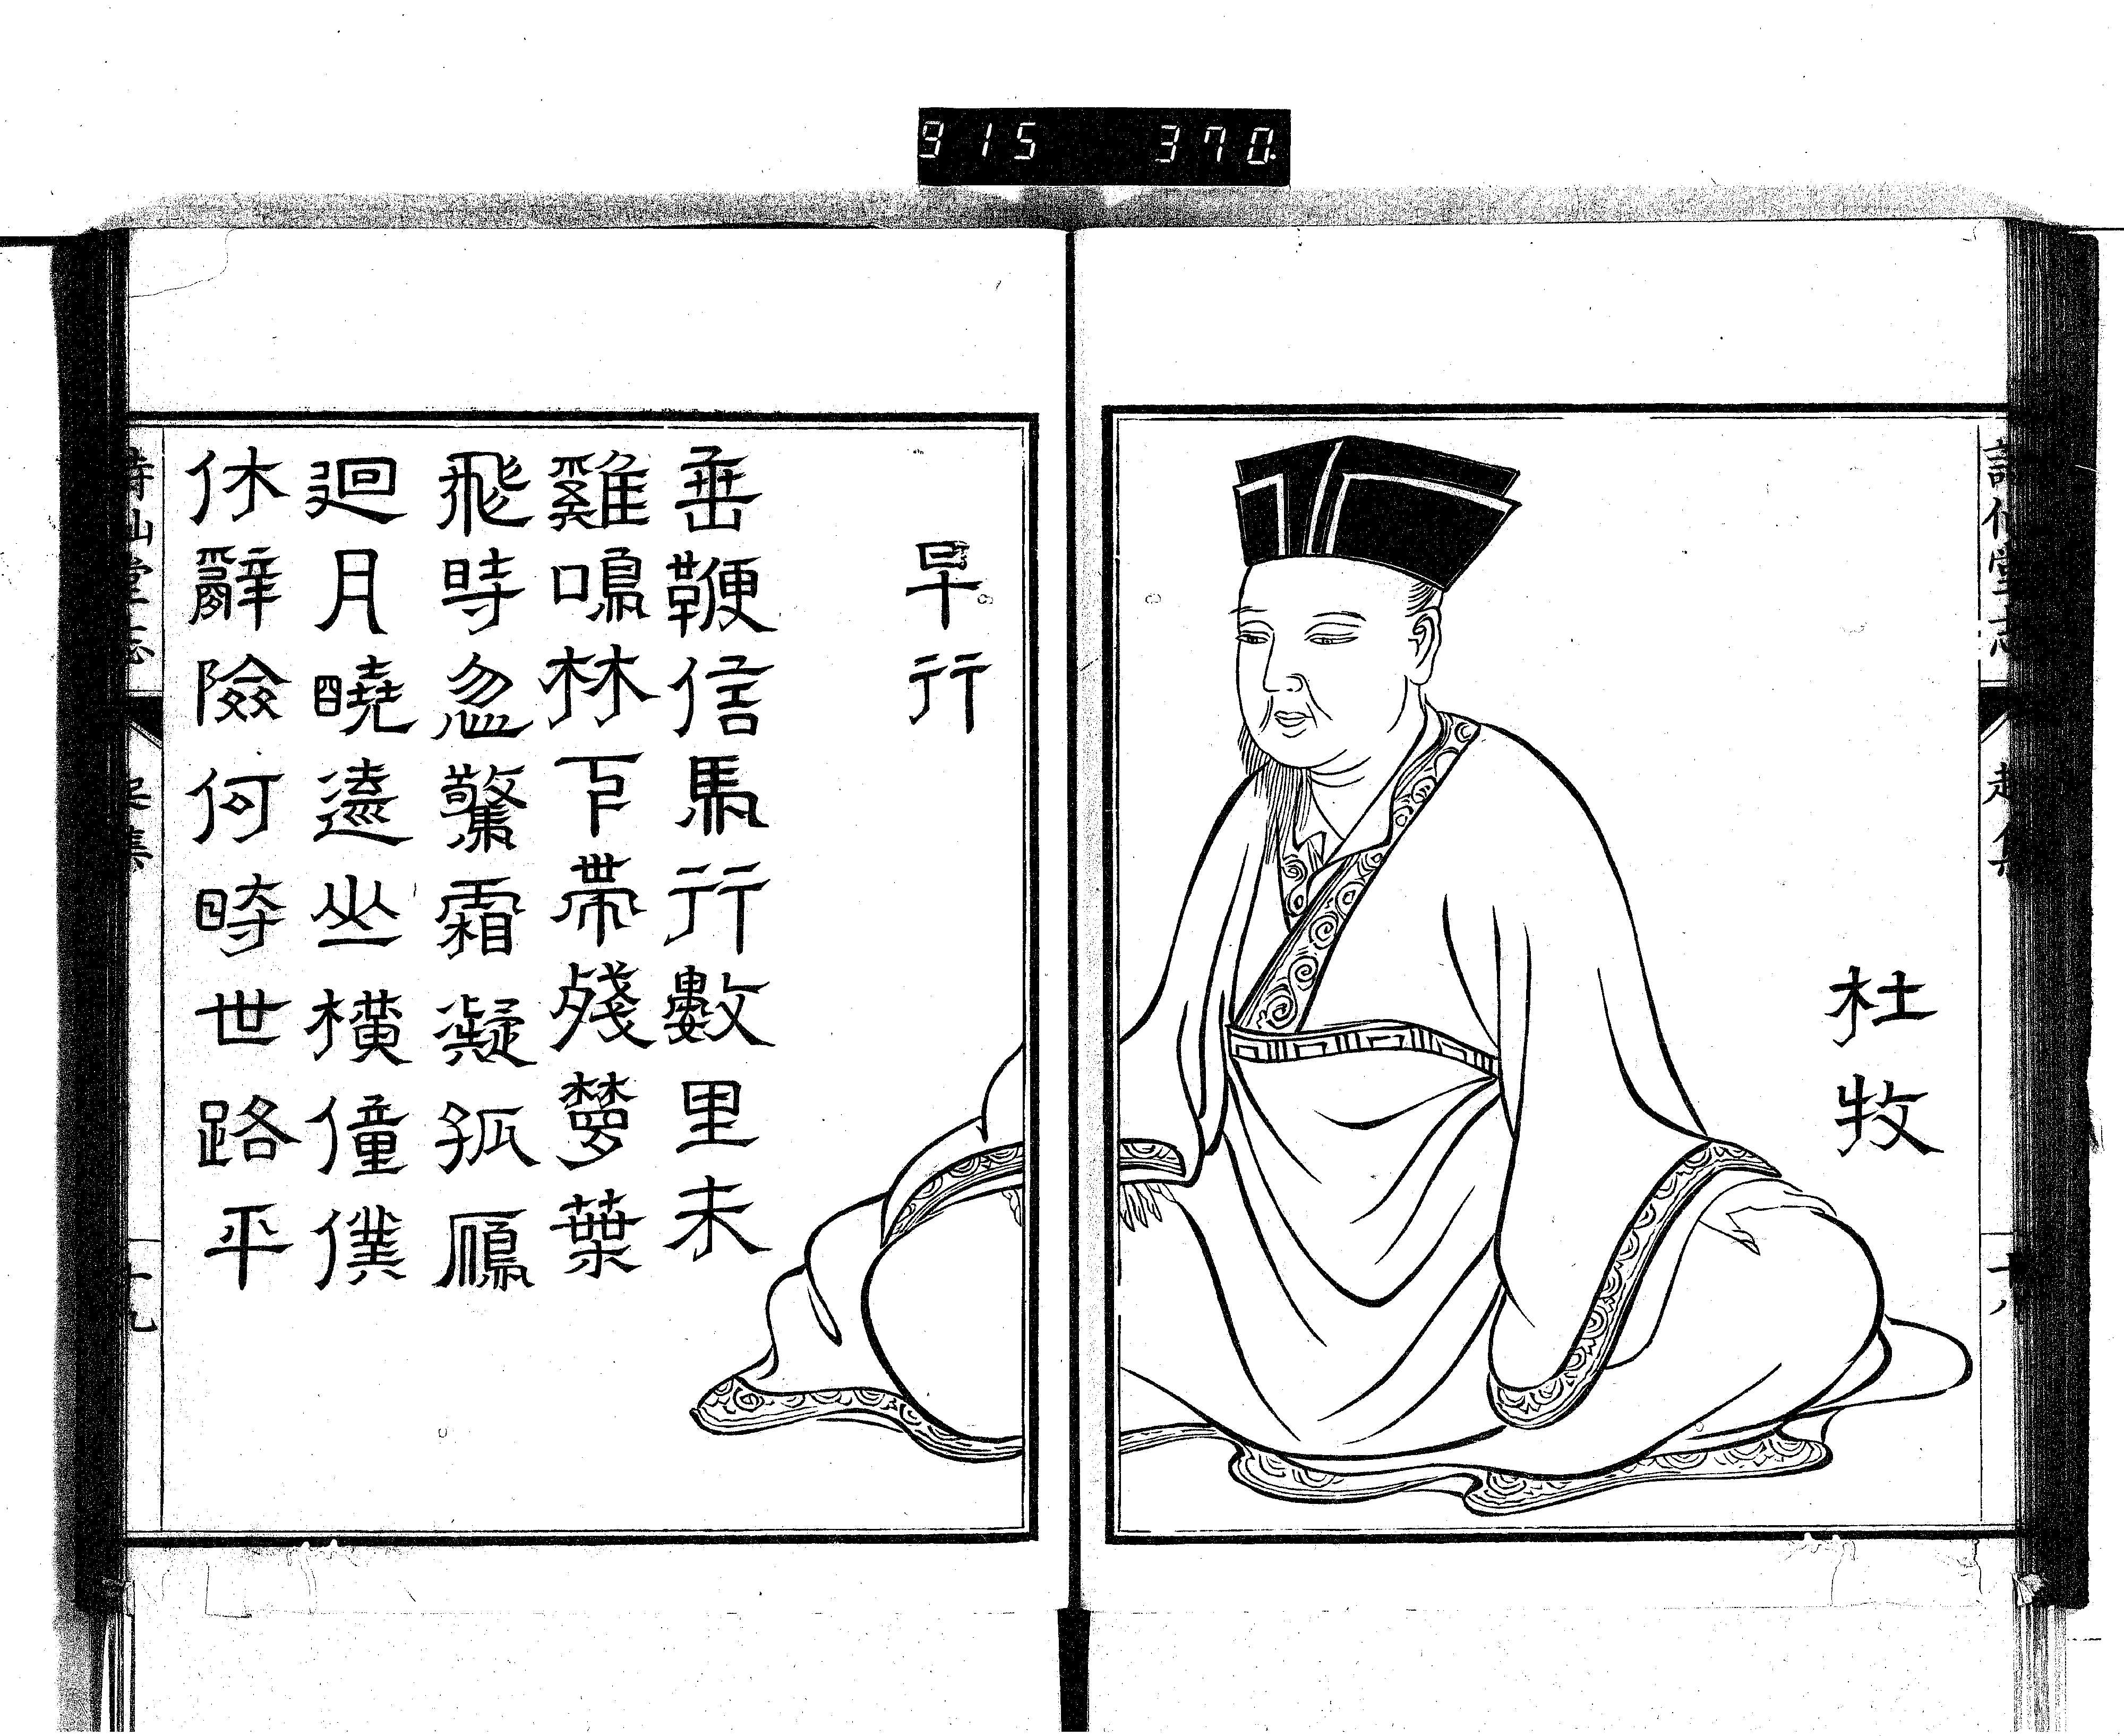 915 370.
詩仙堂志
集
十八
杜牧
早行
垂鞭信馬行數里未
雞鳴林下帶殘夢葉
飛時忽驚霜凝孤鴈
迴月曉遠山橫僮僕
休辭險何時世路平
詩仙堂志
集
十九